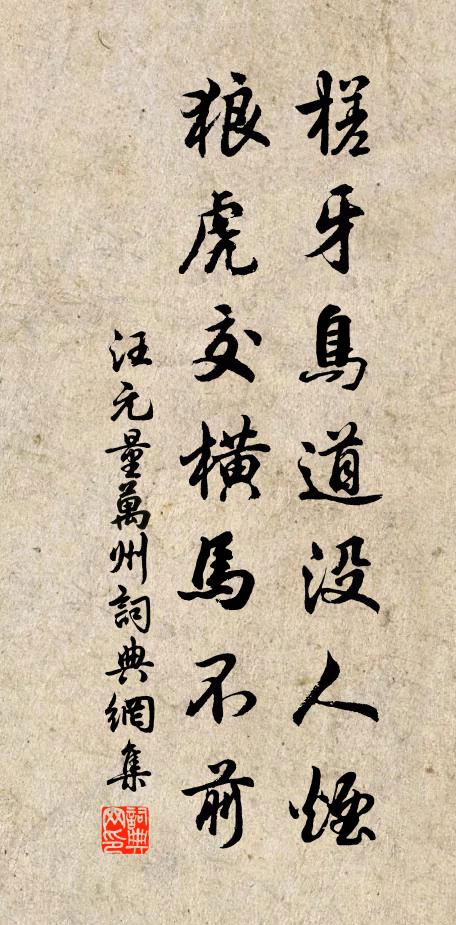 槎牙鳥道没人煙
狼虎交橫馬不前
汪元量萬州詞典網集
詞典網印